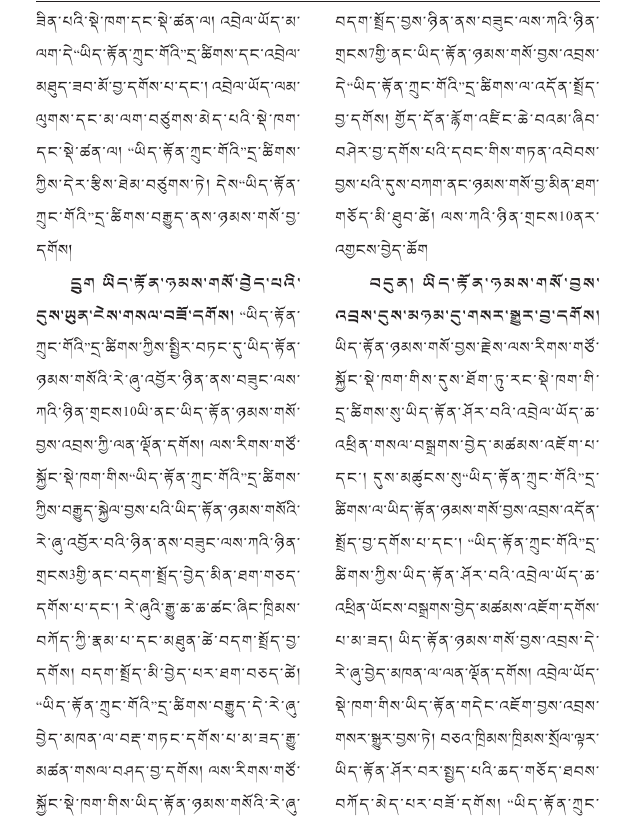 ཟིན་པའི་སྡེ་ཁག་དང་སྡེ་ཚན་ལ། འབྲེལ་ཡོད་མ་
ལག་དེ་“ཡིད་རྟོན་ཀྲུང་གོའི”དྲ་ཚིགས་དང་འབྲེལ་
མཐུད་ཟབ་མོ་བྱ་དགོས་པ་དང་། འབྲེལ་ཡོད་ལམ་
ལུགས་དང་མ་ལག་བཙུགས་མེད་པའི་སྡེ་ཁག་
དང་སྡེ་ཚན་ལ། “ཡིད་རྟོན་ཀྲུང་གོའི”དྲ་ཚིགས་
ཀྱིས་དེར་རྩིས་ཐེམ་བཙུགས་ཏེ། དེས“ཡིད་རྟོན་
ཀྲུང་གོའི”དྲ་ཚིགས་བརྒྱུད་ནས་ཉམས་གསོ་བྱ་
དགོས།
དྲུག ཡིད་རྟོན་ཉམས་གསོ་བྱེད་པའི་
དུས་ཡུན་ངེས་གསལ་བཟོ་དགོས། “ཡིད་རྟོན་
ཀྲུང་གོའི”དྲ་ཚིགས་ཀྱིས་སྤྱིར་བཏང་དུ་ཡིད་རྟོན་
ཉམས་གསོའི་རེ་ཞུ་འབྱོར་ཉིན་ནས་བཟུང་ལས་
ཀའི་ཉིན་གྲངས10ཡི་ནང་ཡིད་རྟོན་ཉམས་གསོ་
བྱས་འབྲས་ཀྱི་ལན་ལྡོན་དགོས། ལས་རིགས་གཙོ་
སྐྱོང་སྡེ་ཁག་གིས“ཡིད་རྟོན་ཀྲུང་གོའི”དྲ་ཚིགས་
ཀྱིས་བརྒྱུད་སྐྱེལ་བྱས་པའི་ཡིད་རྟོན་ཉམས་གསོའི་
རེ་ཞུ་འབྱོར་བའི་ཉིན་ནས་བཟུང་ལས་ཀའི་ཉིན་
གྲངས3གྱི་ནང་བདག་སྤྲོད་བྱེད་མིན་ཐག་གཅད་
དགོས་པ་དང་། རེ་ཞུའི་རྒྱུ་ཆ་ཆ་ཚང་ཞིང་ཁྲིམས་
བཀོད་ཀྱི་རྣམ་པ་དང་མཐུན་ཚེ་བདག་སྤྲོད་བྱ་
དགོས། བདག་སྤྲོད་མི་བྱེད་པར་ཐག་བཅད་ཚེ།
“ཡིད་རྟོན་ཀྲུང་གོའི”དྲ་ཚིགས་བརྒྱུད་དེ་རེ་ཞུ་
བྱེད་མཁན་ལ་བརྡ་གཏང་དགོས་པ་མ་ཟད་རྒྱུ་
མཚན་གསལ་བཤད་བྱ་དགོས། ལས་རིགས་གཙོ་
སྐྱོང་སྡེ་ཁག་གིས་ཡིད་རྟོན་ཉམས་གསོའི་རེ་ཞུ་
བདག་སྤྲོད་བྱས་ཉིན་ནས་བཟུང་ལས་ཀའི་ཉིན་
གྲངས7གྱི་ནང་ཡིད་རྟོན་ཉམས་གསོ་བྱས་འབྲས་
དེ“ཡིད་རྟོན་ཀྲུང་གོའི”དྲ་ཚིགས་ལ་འདོན་སྤྲོད་
བྱ་དགོས། གྱོད་དོན་རྙོག་འཛིང་ཆེ་བའམ་ཞིབ་
བཤེར་བྱ་དགོས་པའི་དབང་གིས་གཏན་འབེབས་
བྱས་པའི་དུས་བཀག་ནང་ཉམས་གསོ་བྱ་མིན་ཐག་
གཅོད་མི་ཐུབ་ཚེ། ལས་ཀའི་ཉིན་གྲངས10ནར་
འགྱངས་བྱེད་ཆོག
བདུན། ཡིད་རྟོན་ཉམས་གསོ་བྱས་
འབྲས་དུས་མཉམ་དུ་གསར་སྒྱུར་བྱ་དགོས།
ཡིད་རྟོན་ཉམས་གསོ་བྱས་རྗེས་ལས་རིགས་གཙོ་
སྐྱོང་སྡེ་ཁག་གིས་དུས་ཐོག་ཏུ་རང་སྡེ་ཁག་གི་
དྲ་ཚིགས་སུ་ཡིད་རྟོན་ཤོར་བའི་འབྲེལ་ཡོད་ཆ་
འཕྲིན་གསལ་བསྒྲགས་བྱེད་མཚམས་འཇོག་པ་
དང་། དུས་མཚུངས་སུ“ཡིད་རྟོན་ཀྲུང་གོའི”དྲ་
ཚིགས་ལ་ཡིད་རྟོན་ཉམས་གསོ་བྱས་འབྲས་འདོན་
སྤྲོད་བྱ་དགོས་པ་དང་། “ཡིད་རྟོན་ཀྲུང་གོའི”དྲ་
ཚིགས་ཀྱིས་ཡིད་རྟོན་ཤོར་བའི་འབྲེལ་ཡོད་ཆ་
འཕྲིན་ཡོངས་བསྒྲགས་བྱེད་མཚམས་འཇོག་དགོས་
པ་མ་ཟད། ཡིད་རྟོན་ཉམས་གསོ་བྱས་འབྲས་དེ་
རེ་ཞུ་བྱེད་མཁན་ལ་ལན་ལྡོན་དགོས། འབྲེལ་ཡོད་
སྡེ་ཁག་གིས་ཡིད་རྟོན་གདེང་འཇོག་བྱས་འབྲས་
གསར་སྒྱུར་བྱས་ཏེ། བཅའ་ཁྲིམས་ཁྲིམས་སྲོལ་ལྟར་
ཡིད་རྟོན་ཤོར་བར་སྤྱད་པའི་ཆད་གཅོད་ཐབས་
བཀོད་མེད་པར་བཟོ་དགོས། “ཡིད་རྟོན་ཀྲུང་